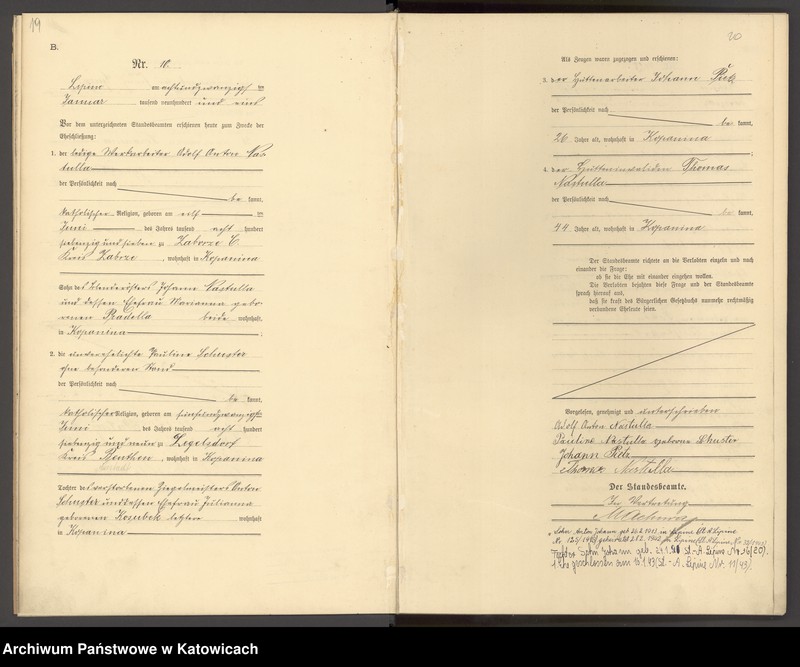 19
B.
Nr. 10.
Lipine am achtundzwanzigsten
Januar tausend neunhundert und eins
Vor dem unterzeichneten Standesbeamten erschienen heute zum Zwecke der
Eheschließung:
1. der ledige Werkarbeiter Adolf Anton Nas-
tulla
der Persönlichkeit nach
be kannt,
katholischer Religion, geboren am elf ten
Juni des Jahres tausend acht hundert
siebenzig und sieben zu Zaborze C.
Kreis Zabrze, wohnhaft in Kopanina
Sohn des Johann Nastulla
und dessen Ehefrau Marianna gebo-
renen Pradella beide wohnhaft
in Kopanina ;
2. die unverehelichte Pauline Schuster
ohne besonderen Stand
der Persönlichkeit nach
be kannt,
katholischer Religion, geboren am fünfundzwanzigsten
Juni des Jahres tausend acht hundert
siebenzig und neun zu
Kreis Beuthen, wohnhaft in Kopanina
Tochter des verstorbenen Ziegelmeisters Anton
Schuster und dessen Ehefrau Julianna
geborenen Kozubek letztere wohnhaft
in Kopanina
20
Als Zeugen waren zugezogen und erschienen:
3. der Hüttenarbeiter Johann
der Persönlichkeit nach
be kannt,
26 Jahre alt, wohnhaft in Kopanina
;
4. der Hütteninvaliden Thomas
Nastulla
der Persönlichkeit nach
be kannt,
44 Jahre alt, wohnhaft in Kopanina
Der Standesbeamte richtete an die Verlobten einzeln und nach
einander die Frage:
ob sie die Ehe mit einander eingehen wollen.
Die Verlobten bejahten diese Frage und der Standesbeamte
sprach hierauf aus,
daß sie kraft des Bürgerlichen Gesetzbuchs nunmehr rechtmäßig
verbundene Eheleute seien.
Vorgelesen, genehmigt und unterschrieben
Adolf Anton Nastulla
Pauline Nastulla geborene Schuster
Johann
Thomas Nastulla
Der Standesbeamte.
In Vertretung
Sohn Anton Johann geb. in Lipine
Sohn Johann geb. St.-A. Lipine Nr.
1. Ehe geschlossen am (St.-A. Lipine Nr. 11/43).
Archiwum Państwowe w Katowicach